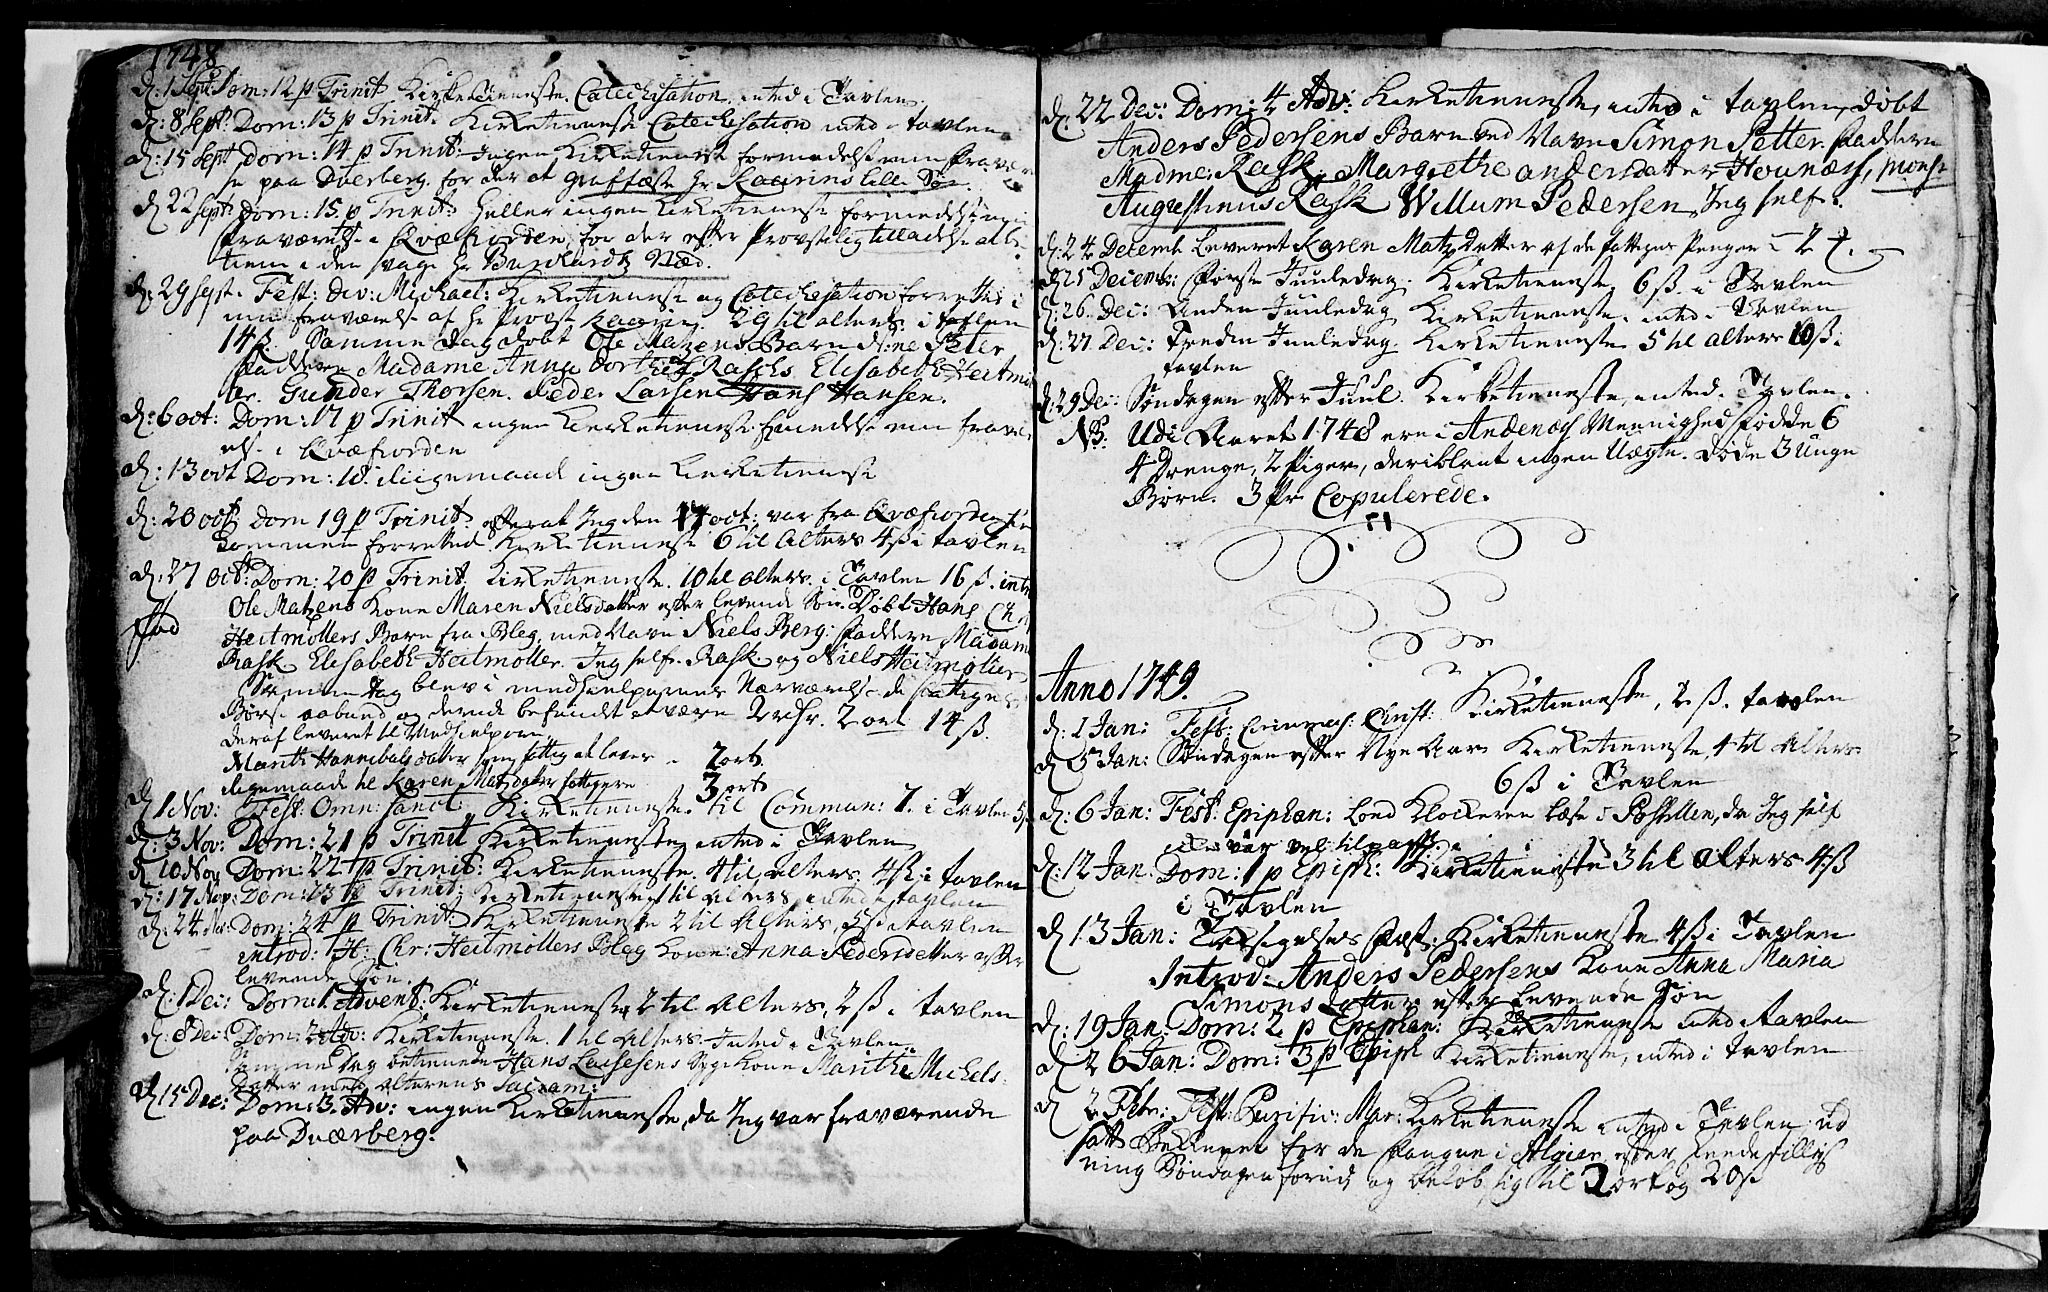 1748
d: 1 Sept: Dom: 12 p Trinit Kirketienneste. Catechisation. inted i Tavlen.
d: 8 Sept: Dom: 13 p Trinit: Kirketienneste Catechisation inted i tavlen
d: 15 Sept Dom: 14 p Trinit: Ingen Kirketienneste formedelst min fraværel-
se paa Dverberg, for der at Hr Kaarins lille Søn.
d 22 Sept: Dom: 15. p Trinit: heller ingen Kirketienneste formedelst min
fraværelse i Qvæfiorden, for der efter Provstelig tilladelse at be-
tiene den svage Hr Burchardt Næd.
d: 29 Sept. Fest: Div: Michael: Kirketienneste og Catechisation forrettet i
min fraværelse af Hr Provst Kaarin. 29 til alters. i tavlen
14 ß. Samme Dag døbt Ole Matzens Barn d: ne Peter
Faddere Madame Anna Dorthe Raschs Elisabeth Heitmøl-
ler. Gunder Thorsen. Peder Larsen Hans Hansen.
d: 6 oct: Dom: 17 p Trinit ingen Kirketienneste formedelst min fravær-
else i Qvæfiorden
d: 13 oct Dom: 18. ligemaad ingen Kirketienneste
d: 20 oct: Dom 19 p Trinit: efterat Jeg den 17 oct: var fra Qvæfiorden hiem
kommen forretted Kirketienneste 6 til Alters 4 ß i tavlen
d: 27 Oct: Dom: 20 p Trinit. Kirketienneste. 10 til alters. i Tavlen 16 ß. intr
Ole Matzens Kone Maren Nielsdatter efter levende Søn. Døbt Hans Chr
Heitmøllers Barn fra Bleg, med Navn Niels Berg: Faddere Madam
Rask Elisabeth Heitmøller. Jeg self. Rask og Niels Heitmøller
Samme Dag blev i medhielpernes Nærværelse de fattiges
Børse aabned og derudi befundet at være 2 rdr. 2 ort 14 ß.
deraf leveret til Medhielperne
Marith Hannibalsdatter syng fattig at leve - 2 ort
ligemaade til Karen Matzdatter fattigere 3 ort
d 1 Nov: Fest: Omn: Sanct: Kirketienneste. til Commun: 7. i Tavlen 5 ß
d: 3 Nov: Dom: 21 p Trinit Kirketienneste inted i Tavlen
d 10 Nov Dom: 22 p Trinit: Kirketienneste. 4 til Alters. 4 ß i tavlen
d: 17 Nov: Dom: 23 p Trinit: Kirketienneste 1 til Alters inted i tavlen
d: 24 Nov: Dom: 24 p Trinit: Kirketienneste 2 til Alters, 5 ß i tavlen
introd: H: Chr: Heitmøllers Bleg Kone: Anna Pedersdatter efter
levende Søn.
d: 1 Dec: Dom: 1. Advent: Kirketienneste 2 til Alters, 2 ß i tavlen
d: 8 Dec: Dom: 2 Adv: Kirketienneste. 1 til Alters. Inted i Tavlen
Samme dag betiente Hans Lassesens Syge Kone Marithe Michels-
datter med alterens Sacram:
d 15 Dec: Dom: 3. Adv: ingen Kirketienneste, da Jeg var fraværende
paa Dværberg.
d: 22 Dec: Dom: 4 Adv: Kirketienneste, inted i tavlen, Døbt
Anders Pedersens Barn ved Navn Simon Petter. Faddere
Madme: Rask, Margrethe andersdatter Hounæss, mons:
Augustinus Rask Willum Pedersen, Jeg self.
d: 24 Decemb Leveret Karen Matzdatter af de fattiges Penger - 2
d 25 Decemb: Første Juuledag. Kirketienneste. 6 ß. i Tavlen
d: 26. Dec: Anden Juuledag Kirketienneste. inted i Tavlen
d: 27 Dec: Tredie Juuledag. Kirketienneste 5 til alters 10 ß i
tavlen
d: 29 Dec: Søndagen efter Juul. Kirketienneste, inted i Tavlen.
NB: Udi Aaret 1748 ere i Andenæs Mennighed fødde 6
4 Drenge, 2 Piger, deriblant ingen Uægte. Døde 3 unge
Børn. 3 Par Copulerede.
Anno 1749.
d: 1 Jan: Fest: Circumcis: Christ: Kirketienneste, 2 ß. tavlen
d 5 Jan: Søndagen efter Nye Aar Kirketienneste, 4 til Alters
6 ß i Tavlen
d: 6 Jan: Fest: Epiphan: Loed Klockeren læse i Postillen, da Jeg self
icke var vel til pass.
d: 12 Jan. Dom: 1 p Epiph: Kirketienneste 3 til alters 4 ß
i Tavlen
d 13 Jan: Taksigelses Fest: Kirketienneste 4 ß i Tavlen
Introd: Anders Pedersens Kone Anna Maria
Simonsdatter efter levende Søn
d: 19 Jan: Dom: 2 p Epiphan: Kirketienneste inted i tavlen
d 26 Jan: Dom: 3 p Epiph Kirketienneste, inted i Tavlen
d 2 Febr: Fest: Purific: Mar: Kirketienneste inted i Tavlen, ud
satt Beckenet for de Fangne i Algier efter
ning Søndagen forud og beløb sig til 2 ort og 20 ß